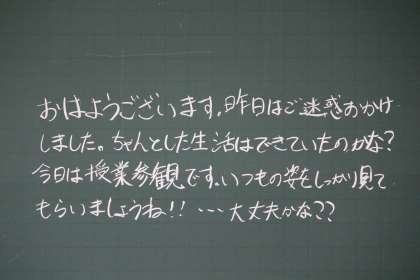 おはようございます。昨日はご迷惑おかけ
しました。ちゃんとした生活はできていたのかな？
今日は授業参観です。いつもの姿をしっかり見て
もらいましょうね！！…大丈夫かな？？